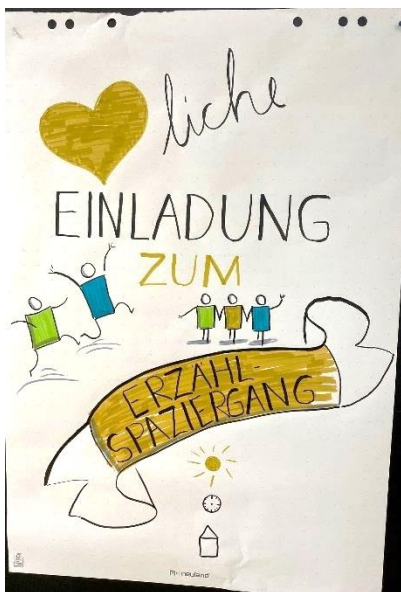 liche
EINLADUNG
ZUM
ERZÄHL-
SPAZIERGANG
neuland